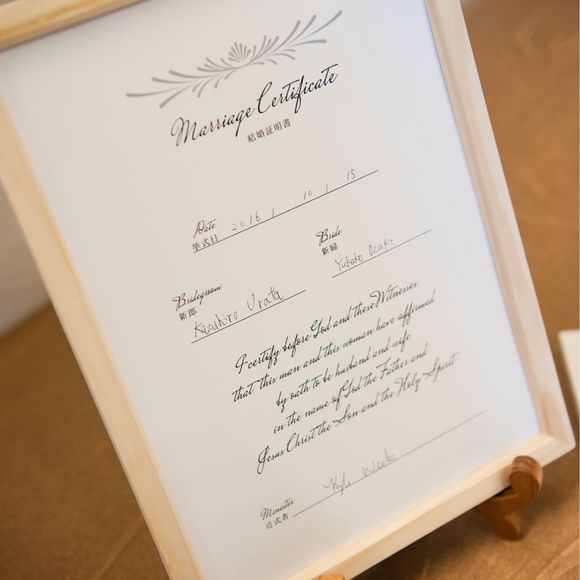 Marriage Certificate
結婚証明書
Date 2016 / 10 / 15
挙式日
Bride
新婦 Yukako Ozaki
Bridegroom
新郎 Kazuhiro Urata
I certify before God and these Witnesses
that this man and this woman have affirmed
by oath to be husband and wife
in the name of God the Father and
Jesus Christ the Son and the Holy Spirit
Minister
司式者 Kyle